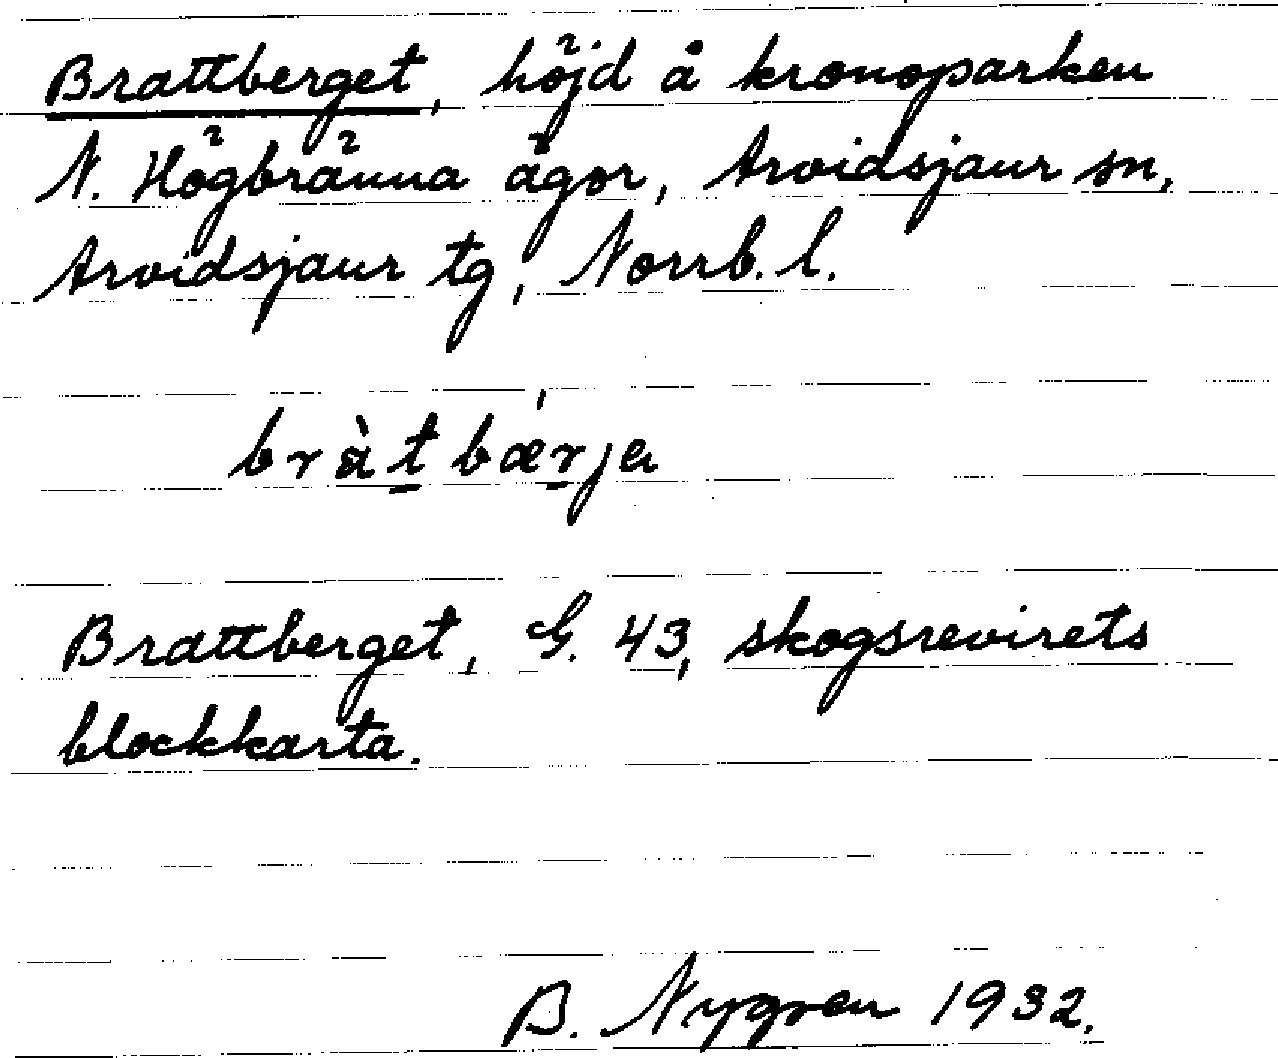 Brattberget, höjd å kronoparken
N. Högbränna ägor, Arvidsjaur sn,
Arvidsjaur tg, Norrb. l.
bràt̲bær̲ja
Brattberget, G. 43, skogsrevirets
blockkarta.
B. Nygren 1932.